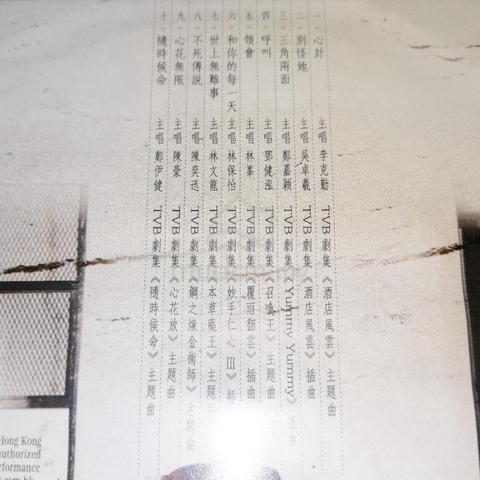 一·心計 主唱 李克勤 TVB劇集《酒店風雲》主題曲
二·別怪她 主唱 吳卓羲 TVB劇集《酒店風雲》插曲
三·三角兩面 主唱 鄭嘉穎 TVB劇集《Yummy Yummy》
四·呼叫 主唱 鄧健泓 TVB劇集《召喚王》主題曲
五·領會 主唱 林峯 TVB劇集《覆雨翻雲》插曲
六·和你的每一天 主唱 林保怡 TVB劇集《妙手仁心III》插
七·世上無難事 主唱 林文龍 TVB劇集《本草藥王》主題
八·不死傳說 主唱 陳奕迅 TVB劇集《鋼之煉金術師》主題曲
九·心花無限 主唱 陳豪 TVB劇集《心花放》主題曲
十·隨時候命 主唱 鄭伊健 TVB劇集《隨時候命》主題曲
Hong Kong
uthorized
rformance